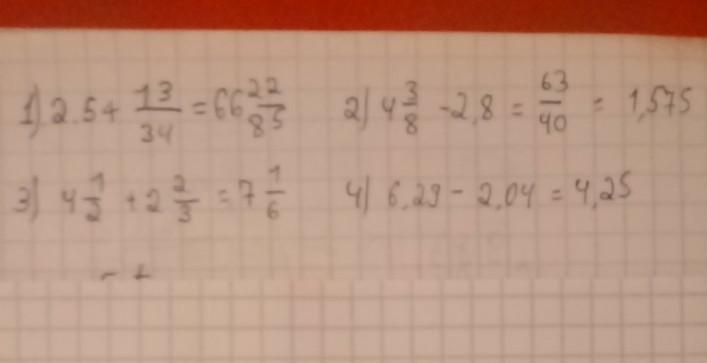 1) 2.5 + 13/34 = 66 22/85 2) 4 3/8 - 2,8 = 63/40 = 1,575
3) 4 1/2 + 2 2/3 = 7 1/6 4) 6,29 - 2,04 = 4,25
- +